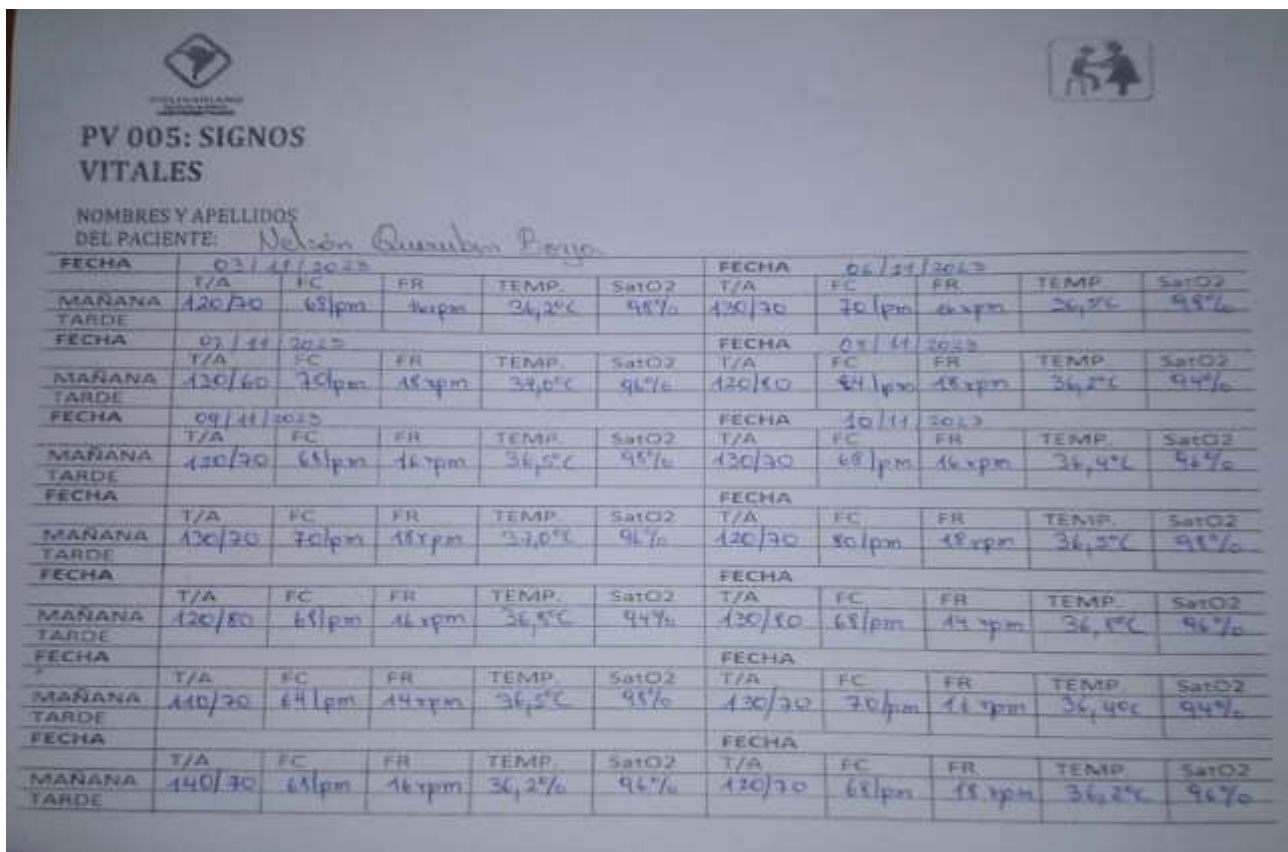 PV 005: SIGNOS
VITALES
NOMBRES Y APELLIDOS
DEL PACIENTE: Nelson Querubin Borja
FECHA 03/11/2023 FECHA 06/11/2023
T/A FC FR TEMP. SatO2 T/A FC FR TEMP. SatO2
MAÑANA 120/70 68lpm 16rpm 36,2°C 98% 130/70 70lpm 16rpm 36,5°C 98%
TARDE
FECHA 07/11/2023 FECHA 08/11/2023
T/A FC FR TEMP. SatO2 T/A FC FR TEMP SatO2
MAÑANA 120/60 70lpm 18rpm 37,0°C 96% 120/80 84lpm 18rpm 36,2°C 94%
TARDE
FECHA 09/11/2023 FECHA 10/11/2023
T/A FC FR TEMP. SatO2 T/A FC FR TEMP. SatO2
MAÑANA 120/70 68lpm 16rpm 36,5°C 98% 130/70 68lpm 16rpm 36,4°C 96%
TARDE
FECHA FECHA
T/A FC FR TEMP. SatO2 T/A FC FR TEMP. SatO2
MAÑANA 130/70 70lpm 18rpm 37,0°C 96% 120/70 80lpm 18rpm 36,5°C 98%
TARDE
FECHA FECHA
T/A FC FR TEMP. SatO2 T/A FC FR TEMP. SatO2
MAÑANA 120/80 68lpm 16rpm 36,8°C 94% 130/80 68lpm 14rpm 36,8°C 96%
TARDE
FECHA FECHA
T/A FC FR TEMP. SatO2 T/A FC FR TEMP. SatO2
MAÑANA 110/70 64lpm 14rpm 36,5°C 98% 130/70 70lpm 16rpm 36,4°C 94%
TARDE
FECHA FECHA
T/A FC FR TEMP. SatO2 T/A FC FR TEMP. SatO2
MAÑANA 140/70 68lpm 16rpm 36,2% 96% 120/70 68lpm 18rpm 36,2°C 96%
TARDE